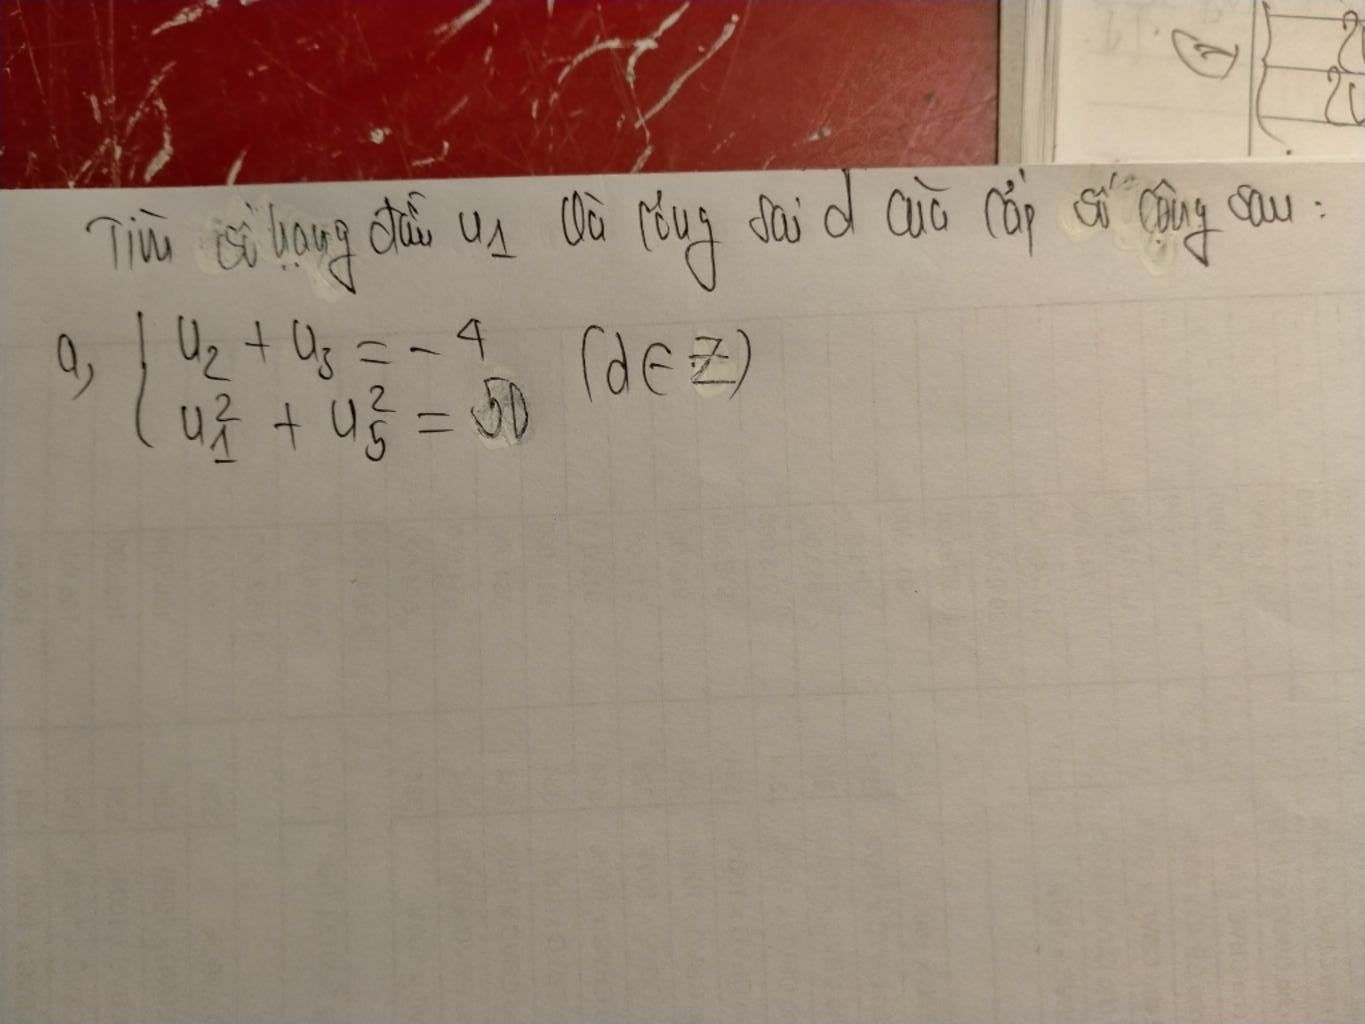 Tìm số hạng đầu u₁ và công sai d của cấp số cộng sau:
a, { u₂ + u₃ = - 4 (d ∈ Z)
u₁² + u₅² = 50